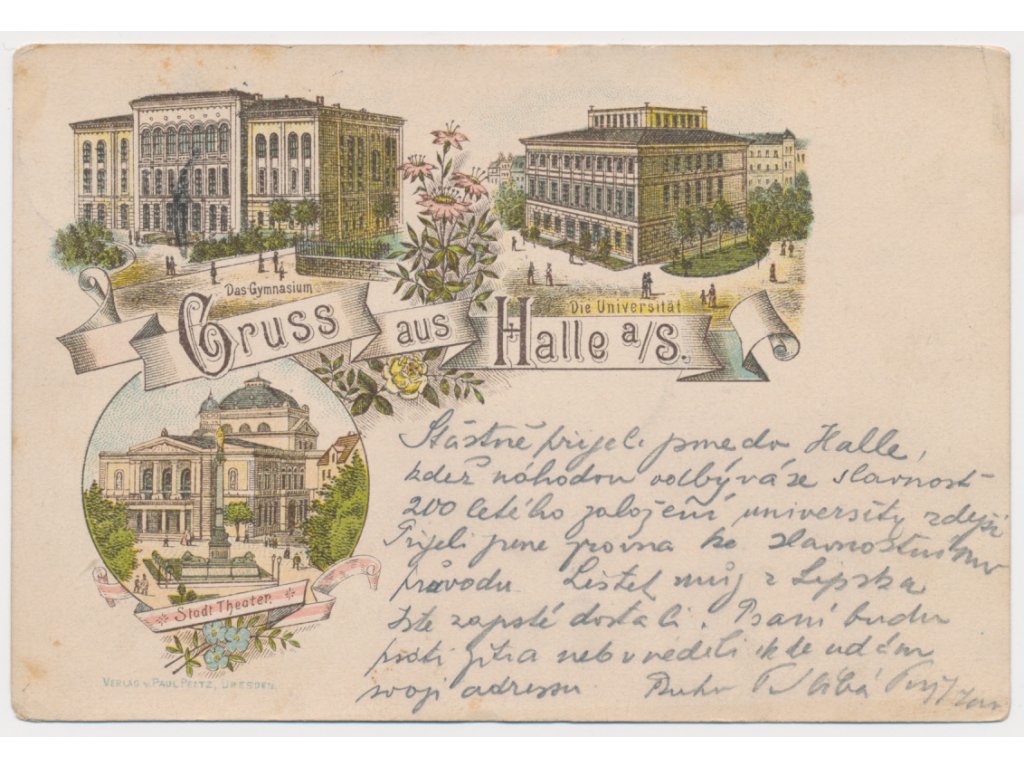 Das Gymnasium
Die Universität
Gruss aus Halle a/S.
Stadt Theater.
VERLAG v. PAUL PEITZ, DRESDEN.
Štástně přijeli jsme do Halle,
kdež náhodou odbývá se slavnost
200 letého založení university zdejší
Přijeli jsme zrovna ke slavnostnímu
průvodu. Lístek můj z Lipska
jste zajisté dostali. Psaní budu
psáti zítra neb v neděli kde udám
svoji adressu.